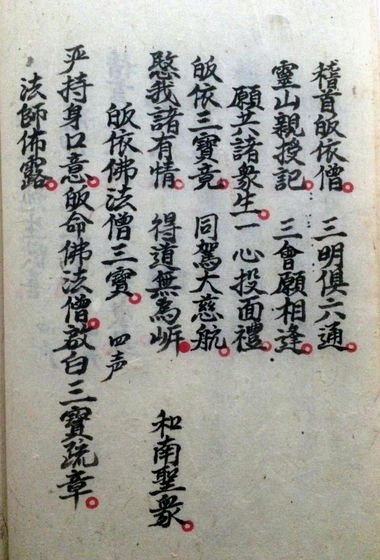 稽首皈依僧。三明俱六通。
靈山親授記。三會願相逢。
願共諸衆生。一心投面禮。
皈依三寶竟。同駕大慈航。
愍我諸有情。得道無為岼。和南聖衆。
皈依佛法僧三寶。四声
严持身口意。皈命佛法僧。啟白三寶疏章。
法師佈露。